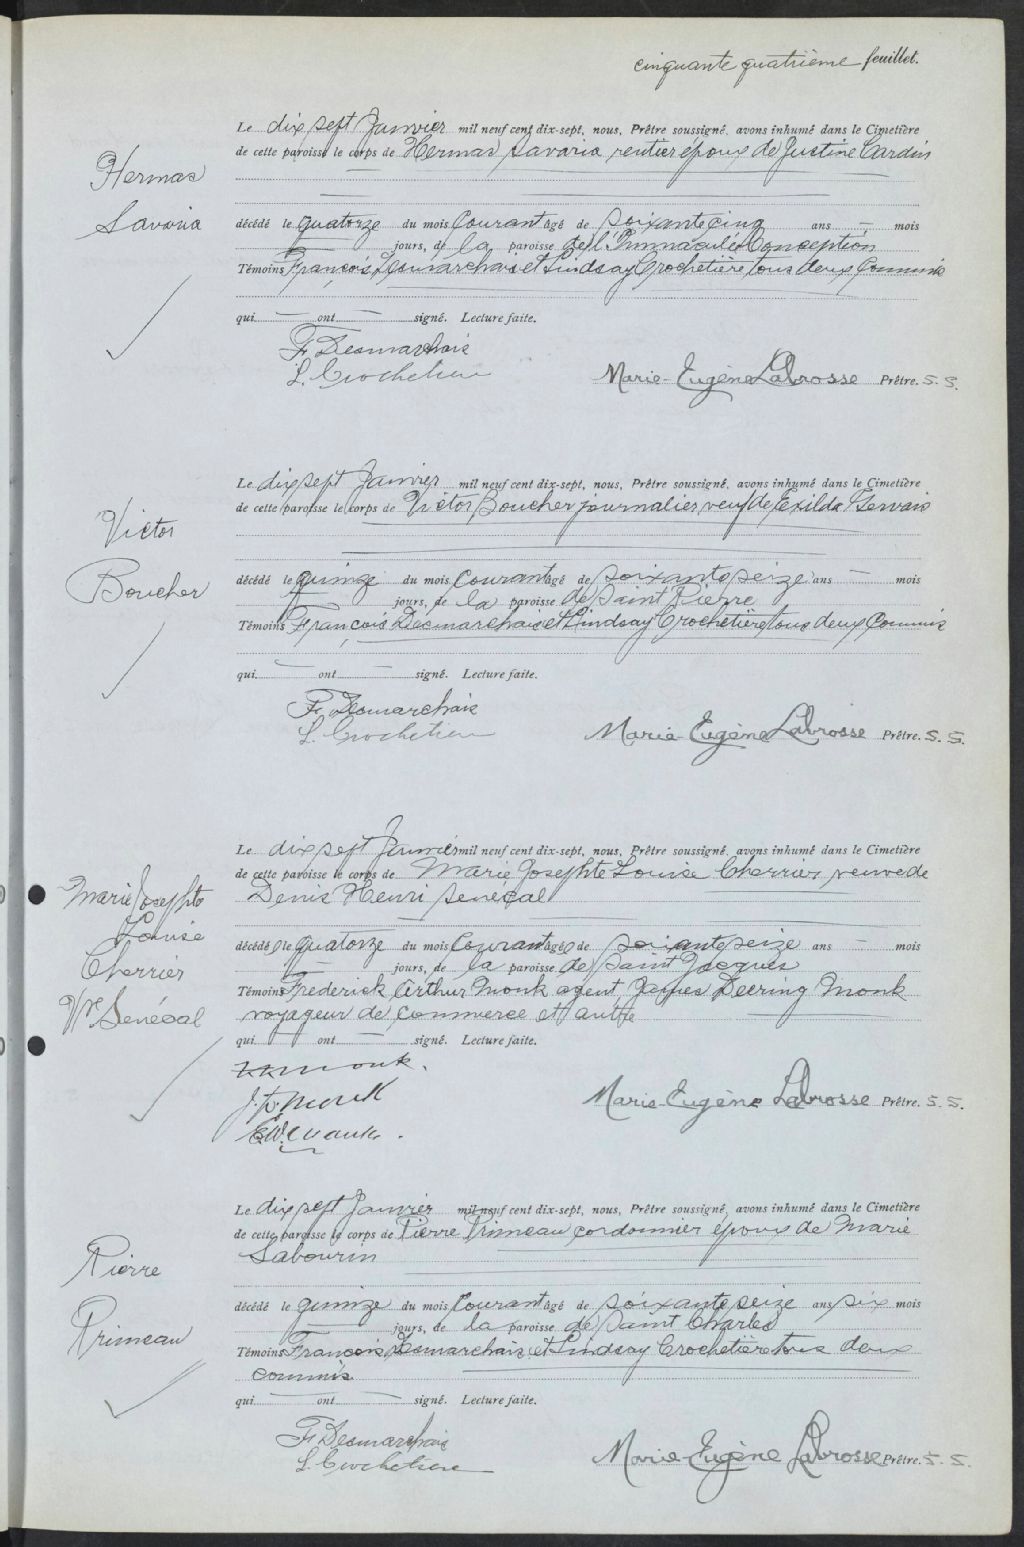 cinquante quatrième feuillet.
Le dix sept Janvier mil neuf cent dix-sept, nous, Prêtre soussigné, avons inhumé dans le Cimetière
Hermas
Savaria
de cette paroisse le corps de Hermas Savaria rentier époux de Justine Cardin
décédé le quatorze du mois Courant âgé de soixante cinq ans — mois
— jours, de la paroisse de l'Immaculée Conception
Témoins François Desmarchais et Lindsay Crochetière tous deux Commis
qui — ont — signé. Lecture faite.
F. Desmarchais
L. Crochetiere
Marie-Eugène Labrosse Prêtre. S. S.
Le dix sept Janvier mil neuf cent dix-sept, nous, Prêtre soussigné, avons inhumé dans le Cimetière
Victor
Boucher
de cette paroisse le corps de Victor Boucher journalier veuf de Exilda Gervais
décédé le quinze du mois Courant âgé de soixante seize ans — mois
— jours, de la paroisse de Saint Pierre
Témoins François Desmarchais et Lindsay Crochetière tous deux Commis
qui — ont — signé. Lecture faite.
F. Desmarchais
L. Crochetiere
Marie-Eugène Labrosse Prêtre. S. S.
Le dix sept Janvier mil neuf cent dix-sept, nous, Prêtre soussigné, avons inhumé dans le Cimetière
Marie Josephte
Louise
Cherrier
Vve Sénécal
de cette paroisse le corps de Marie Josephte Louise Cherrier veuve de
Denis Henri Senecal
décédé le quatorze du mois Courant âgé de soixante seize ans — mois
— jours, de la paroisse de Saint Jacques
Témoins Frederick Arthur Monk agent, James Deering Monk
voyageur de commerce et autre
qui — ont — signé. Lecture faite.
Monk.
J. D. Monk
Marie-Eugène Labrosse Prêtre. S. S.
Le dix sept Janvier mil neuf cent dix-sept, nous, Prêtre soussigné, avons inhumé dans le Cimetière
Pierre
Primeau
de cette paroisse le corps de Pierre Primeau cordonnier époux de Marie
Sabourin
décédé le quinze du mois Courant âgé de soixante seize ans six mois
— jours, de la paroisse de Saint Charles
Témoins François Desmarchais et Lindsay Crochetière tous deux
commis
qui — ont — signé. Lecture faite.
F. Desmarchais
L. Crochetiere
Marie-Eugène Labrosse Prêtre. S. S.